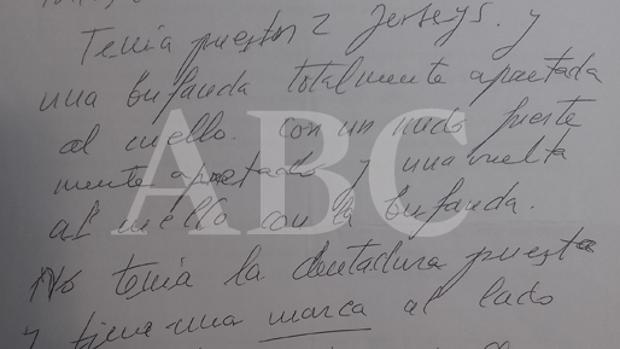 Tenia puestos 2 Jerseys. y
una bufanda totalmente apretada
al cuello. con un nudo fuerte
mente apretado y una vuelta
al cuello con la bufanda.
No tenia la dentadura puesta
y tiene una marca al lado
ABC